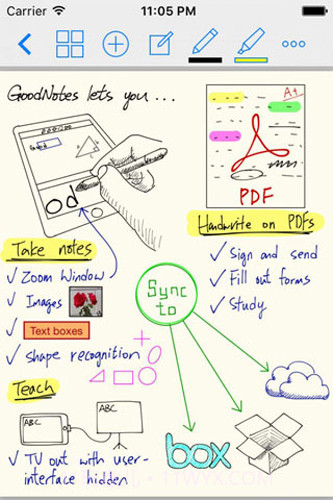 Carrier 11:05 PM
GoodNotes lets you...
od
A+
PDF
Handwrite on PDFs
✓ Sign and send
✓ Fill out forms
✓ Study
Take notes
✓ Zoom Window
✓ Images
✓ Text boxes
✓ shape recognition
Sync
to
Teach
ABC
ABC
✓ TV out with user-
interface hidden
box